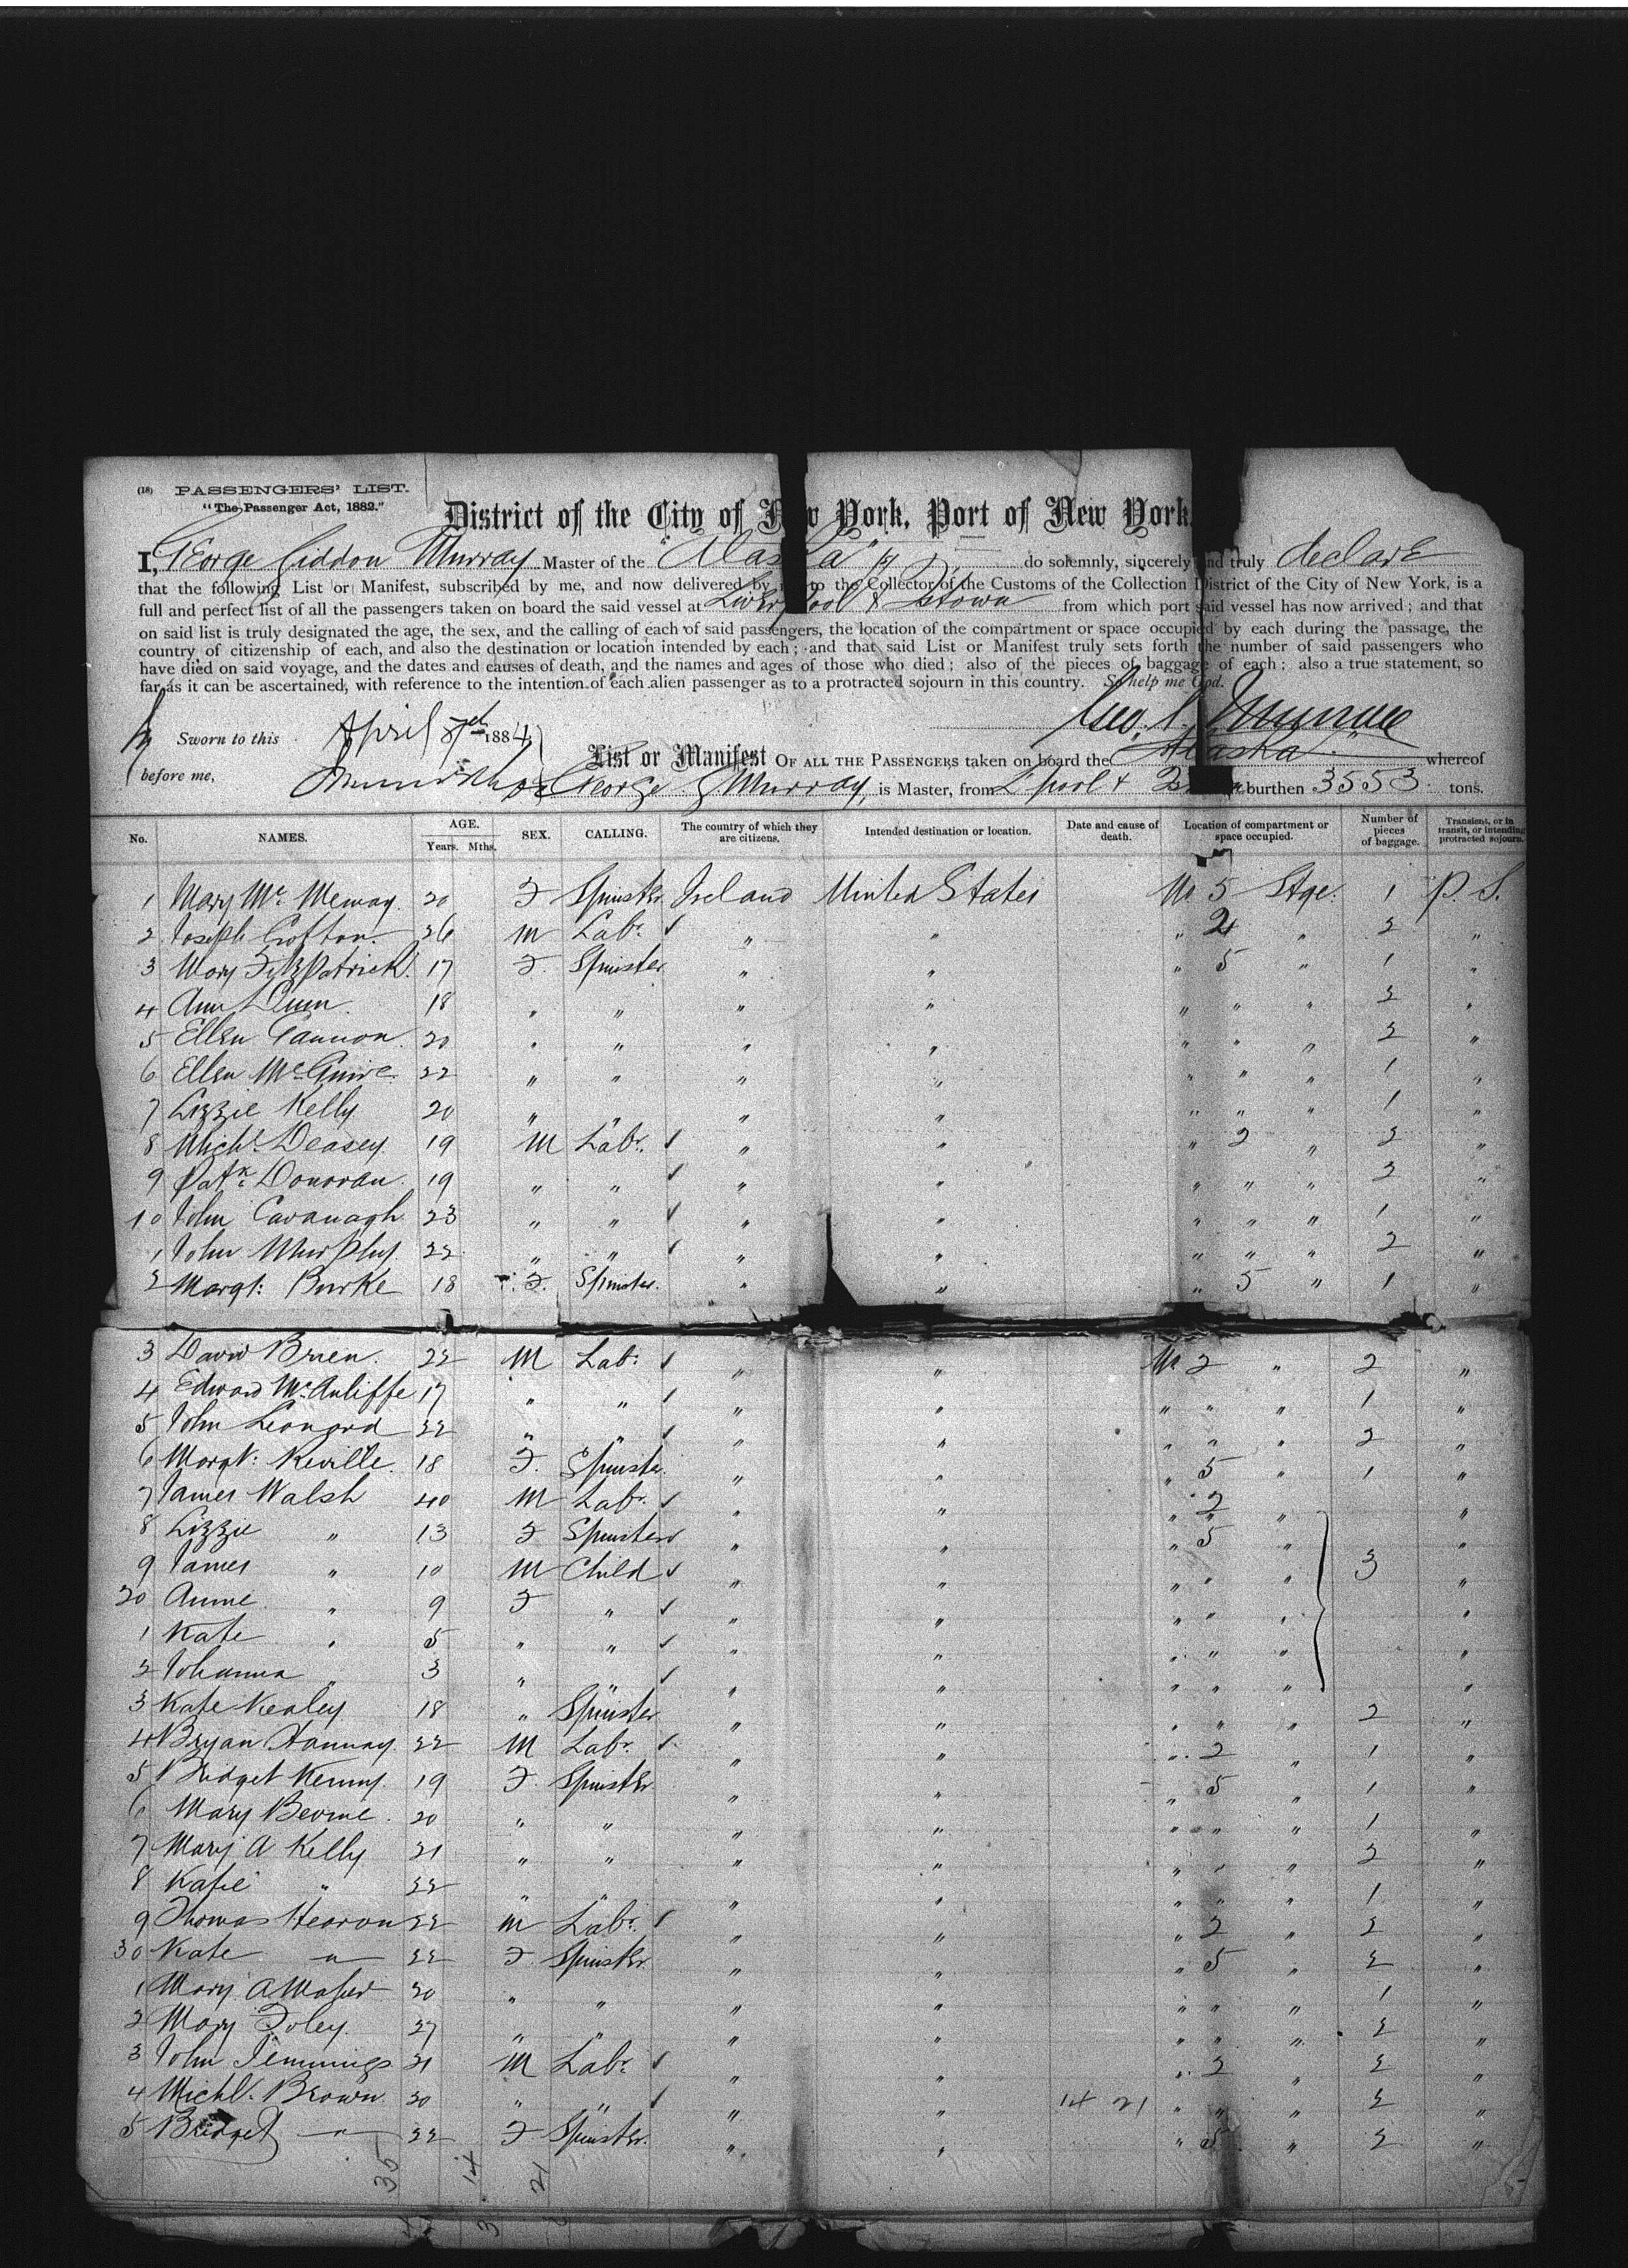 (18) PASSENGERS' LIST.
"The Passenger Act, 1882."
District of the City of New York, Port of New York.
I, George Siddon Murray Master of the "Alaska" do solemnly, sincerely and truly declare
that the following List or Manifest, subscribed by me, and now delivered by me to the Collector of the Customs of the Collection District of the City of New York, is a
full and perfect list of all the passengers taken on board the said vessel at Liverpool & Qstown from which port said vessel has now arrived; and that
on said list is truly designated the age, the sex, and the calling of each of said passengers, the location of the compartment or space occupied by each during the passage, the
country of citizenship of each, and also the destination or location intended by each; and that said List or Manifest truly sets forth the number of said passengers who
have died on said voyage, and the dates and causes of death, and the names and ages of those who died; also of the pieces of baggage of each; also a true statement, so
far as it can be ascertained, with reference to the intention of each alien passenger as to a protracted sojourn in this country. So help me God.
Geo. S. Murray
Sworn to this April 1884
List or Manifest OF ALL THE PASSENGERS taken on board the Alaska whereof
before me, George S Murray, is Master, from L'pool & burthen 3553 tons.
No. NAMES. AGE. Years. Mths. SEX. CALLING. The country of which they are citizens. Intended destination or location. Date and cause of death. Location of compartment or space occupied. Number of pieces of baggage. Transient, or in transit, or intending protracted sojourn.
1 Mary Mc 20 F Spinster Ireland United States No 5 Stge. 1 P. S.
2 Joseph Crofton 26 M Labr. ✓ " " " 2 " 2 "
3 Mary Fitzpatrick 17 F. Spinster " " " 5 " 1 "
4 Ann Dunn 18 " " " " " " " 2 "
5 Ellen Cannon 20 " " " " " " " 2 "
6 Ellen McGuire 22 " " " " " " " 1 "
7 Lizzie Kelly 20 " " " " " " " 1 "
8 Michl. Deasey 19 M Labr. ✓ " " " 2 " 2 "
9 Patk. Donovan 19 " " ✓ " " " " " 2 "
10 John Cavanagh 23 " " ✓ " " " " " 1 "
1 John Murphy 22 " " ✓ " " " " " 2 "
2 Margt: Burke 18 F. Spinster. " " " 5 " 1 "
3 David Brien. 22 M Lab: ✓ " " No 2 " 2 "
4 Edward McAuliffe 17 " " ✓ " " " " " 1 "
5 John Leonard 22 " " ✓ " " " " " 2 "
6 Margt: Keville. 18 F. Spinster. " " " 5 " 1 "
7 James Walsh 40 M Labr. ✓ " " " 2 " "
8 Lizzie " 13 F Spinster ✓ " " " 5 " "
9 James " 10 M Child ✓ " " " " " 3 "
20 Annie " 9 F " ✓ " " " " " "
1 Kate " 5 " " ✓ " " " " " "
2 Johanna " 3 " " ✓ " " " " " "
3 Kate Kealey 18 " Spinster " " " " " 2 "
4 Bryan Hannay. 22 M Labr. ✓ " " " 2 " 1 "
5 Bridget Kenny. 19 F. Spinster " " " 5 " 1 "
6 Mary Beirne. 20 " " " " " " " 1 "
7 Mary A Kelly 21 " " " " " " " 2 "
8 Katie " 22 " " " " " " " 1 "
9 Thomas Hearon 22 M Labr. ✓ " " " 2 " 2 "
30 Kate " 22 F. Spinster " " " 5 " 2 "
1 Mary A 20 " " " " " " " 1 "
2 Mary Foley. 27 " " " " " " " 2 "
3 John Jennings 21 M Labr. ✓ " " " 2 " 2 "
4 Michl. Brown 20 " " ✓ " " 14 21 " " " 2 "
5 Bridget " 22 F Spinster. " " " 5 " 2 "
35 14 21